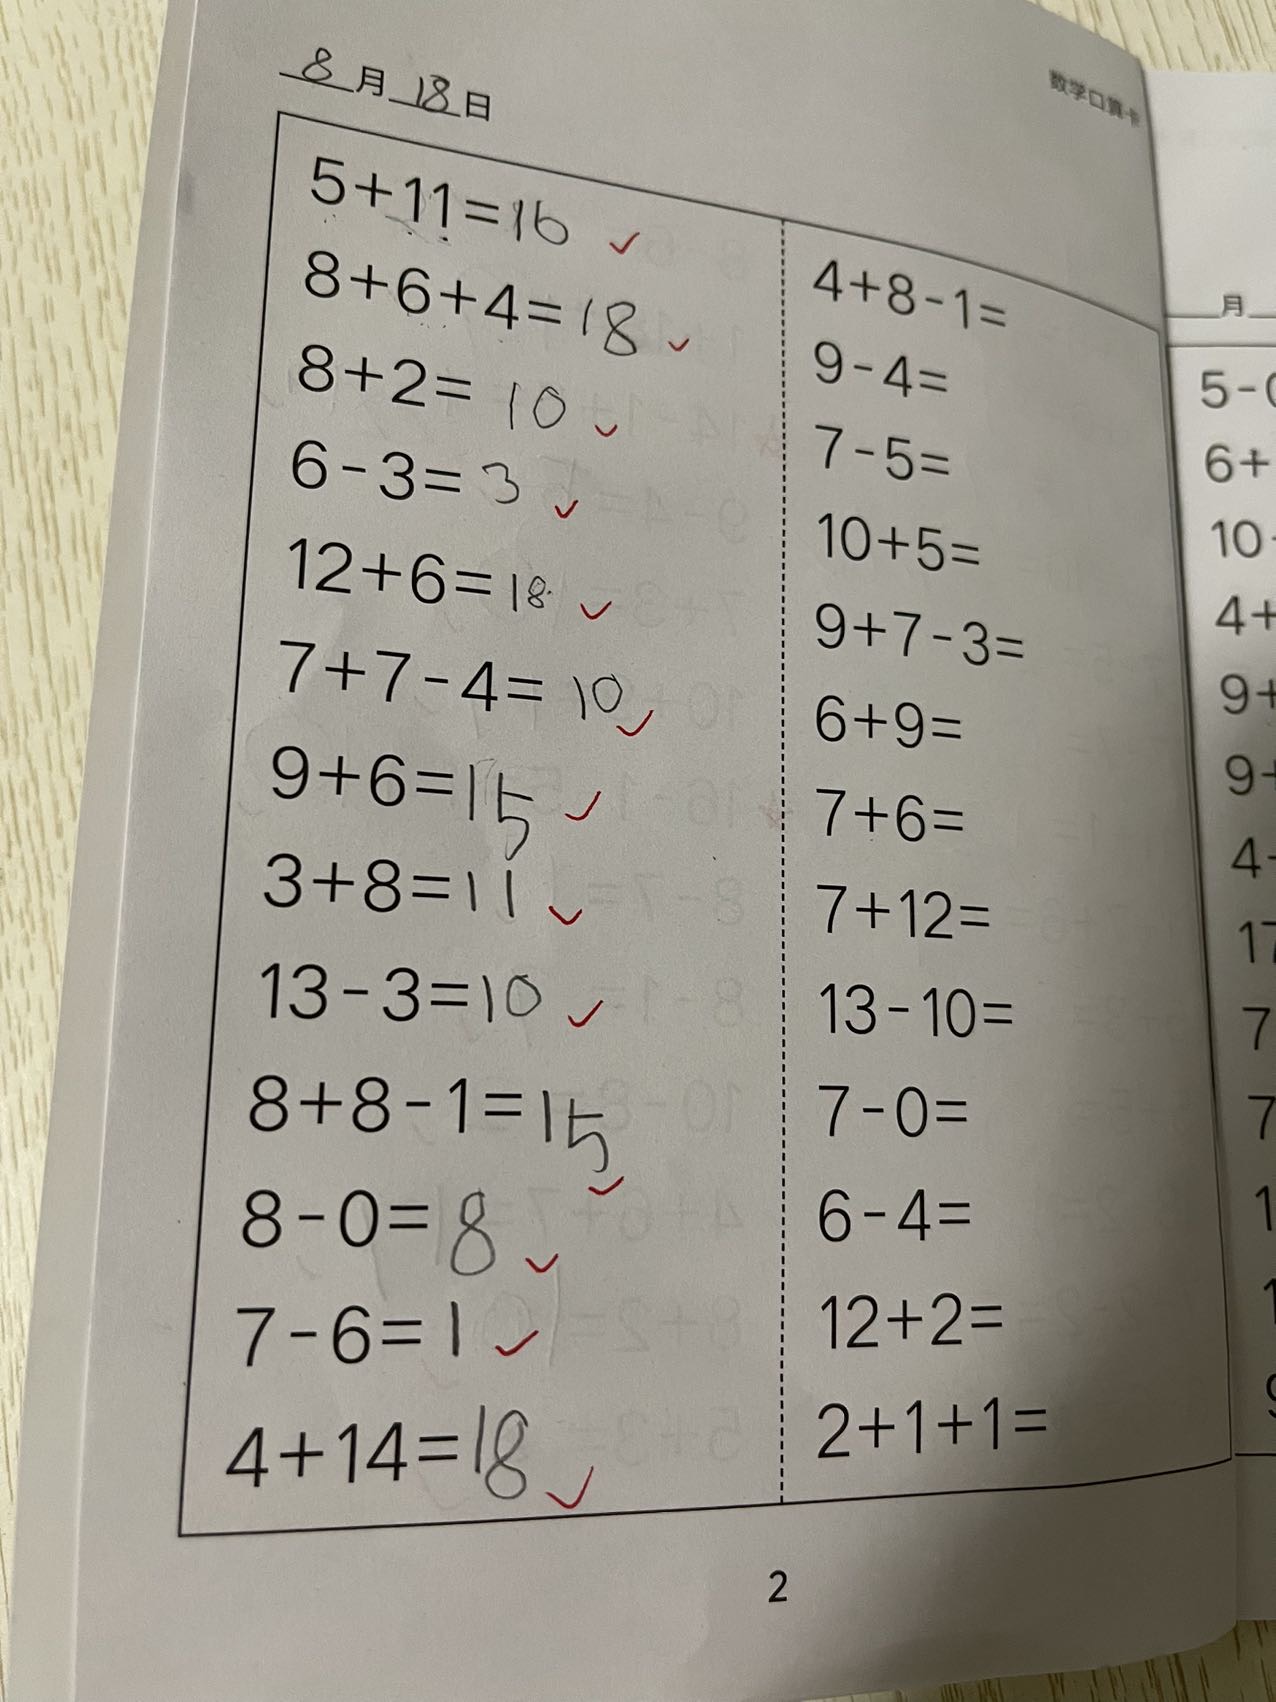 8月18日
数学口算卡
5+11=16
8+6+4=18
8+2=10
6-3=3
12+6=18
7+7-4=10
9+6=15
3+8=11
13-3=10
8+8-1=15
8-0=8
7-6=1
4+14=18
4+8-1=
9-4=
7-5=
10+5=
9+7-3=
6+9=
7+6=
7+12=
13-10=
7-0=
6-4=
12+2=
2+1+1=
2
月
5-
6+
10
4+
9+
9+
4
17
7
7
1
1